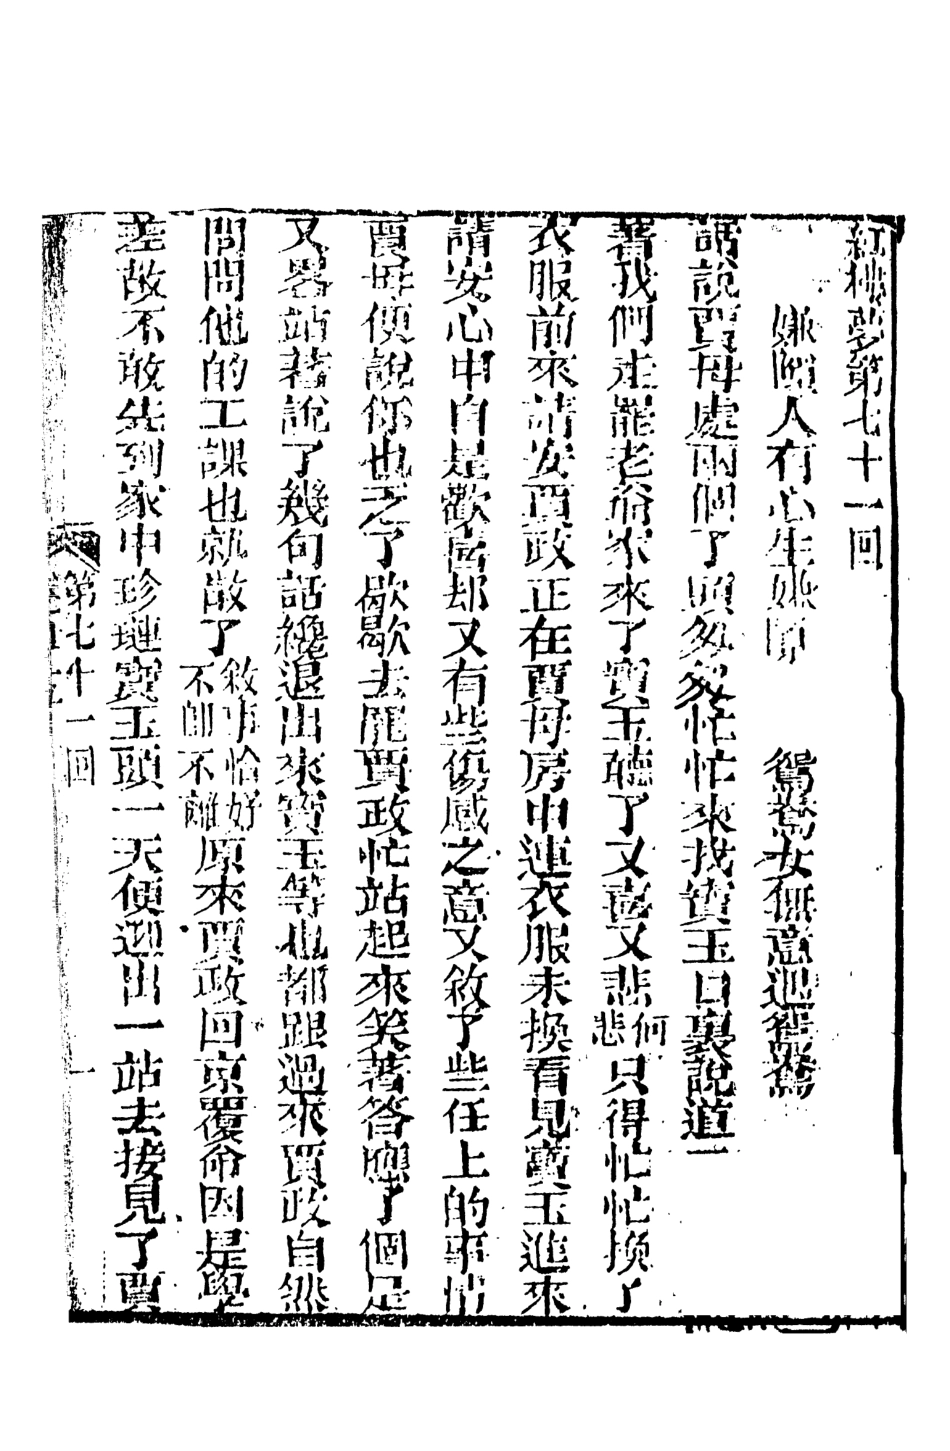 紅樓夢第七十一回
嫌隙人有心生嫌隙　鴛鴦女無意遇鴛鴦
話說賈母處兩個丫頭匆匆忙忙來找寶玉口裏說道二
著我們走罷老爺家來了寶玉聽了又喜又悲何悲只得忙忙換了
衣服前來請安賈政正在賈母房中連衣服未換看見寶玉進來
請安心中自是歡喜却又有些傷感之意又敘了些任上的事情
賈母便說你也乏了歇歇去罷賈政忙站起來笑著答應了個是
又畧站著說了幾句話纔退出來寶玉等也都跟過來賈政自然
問問他的工課也就散了敘事恰好不即不離原來賈政回京覆命因是學
差故不敢先到家中珍璉寶玉頭一天便迎出一站去接見了賈
第七十一回　一